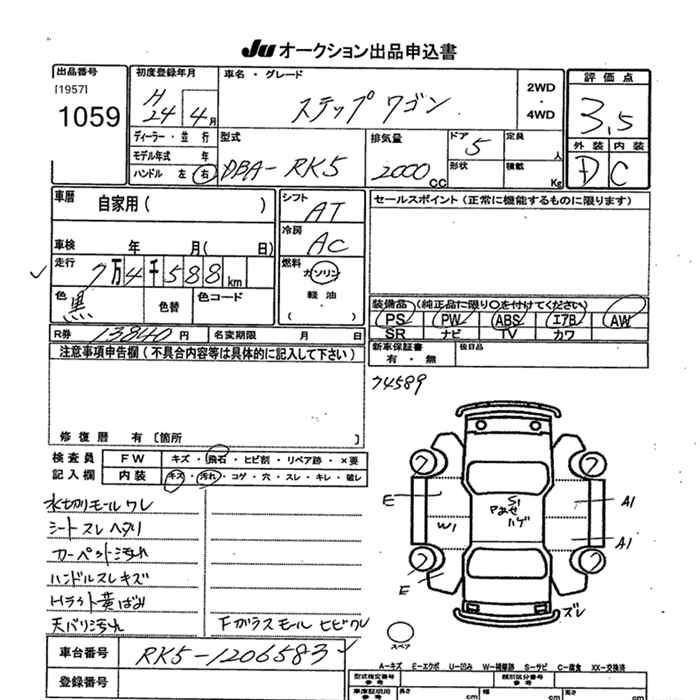 JU オークション出品申込書
出品番号
[1957]
1059
初度登録年月
H 24 4月
ディーラー・並行
モデル年式 年
ハンドル 左 右
車名・グレード
ステップワゴン
2WD
・
4WD
評価点
3.5
外装 内装
D C
型式
DBA-RK5
排気量
2000 CC
ドア 5
形状
定員 人
積載 Kg
車歴 自家用( )
車検 年 月( 日)
走行 7万4千588km
色 黒 色替 色コード
シフト AT
冷房 AC
燃料
ガソリン
軽油
( )
セールスポイント(正常に機能するものに限ります)
装備品(純正品に限り○を付けてください)
PS PW ABS エアB AW
SR ナビ TV カワ
R券 13840円 名変期限 月 日
新車保証書
有・無
後日品
注意事項申告欄(不具合内容等は具体的に記入して下さい)
修復歴 有〔箇所 〕
74589
検査員
記入欄
FW キズ・飛石・ヒビ割・リペア跡・×要
内装 キズ・汚れ・コゲ・穴・スレ・キレ・破レ
水切りモールワレ
シートスレヘタリ
カーペット汚れ
ハンドルスレキズ
Hライト黄ばみ
天バリ汚れ
Fガラスモールヒビワレ
E
W1
S1
Pあせ
ハゲ
A1
A1
E
ズレ
スペア
車台番号 RK5-1206583
登録番号
A-キズ E-エクボ U-凹み W-補修跡 S-サビ C-腐食 XX-交換済
型式指定番号
参考
類別区分番号
参考
車庫証明用
参考
長さ cm 幅 cm 高さ cm